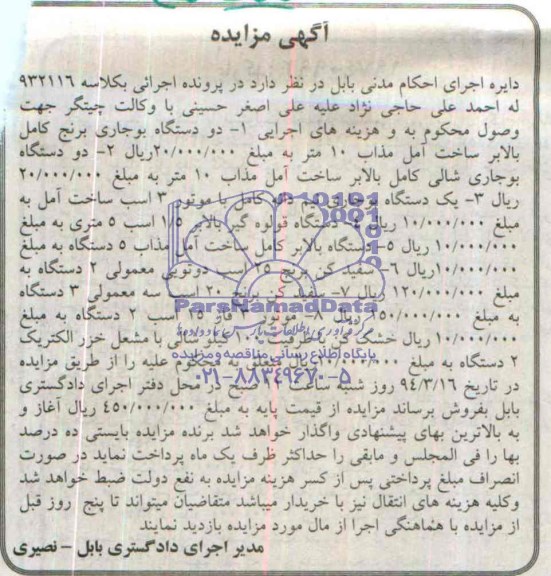 آگهی مزایده
دایره اجرای احکام مدنی بابل در نظر دارد در پرونده اجرائی بکلاسه ۹۳۲۱۱۶
له احمد علی حاجی نژاد علیه علی اصغر حسینی با وکالت چیتگر جهت
وصول محکوم به و هزینه های اجرایی ۱- دو دستگاه بوجاری برنج کامل
بالابر ساخت آمل مذاب ۱۰ متر به مبلغ ۲۰/۰۰۰/۰۰۰ریال ۲- دو دستگاه
بوجاری شالی کامل بالابر ساخت آمل مذاب ۱۰ متر به مبلغ ۲۰/۰۰۰/۰۰۰
ریال ۳- یک دستگاه بوجاری نیم دانه کامل با موتور ۳ اسب ساخت آمل به
مبلغ ۱۰/۰۰۰/۰۰۰ ریال ۴- دستگاه قولوه گیر بالابر ۱/۵ اسب ۵ متری به مبلغ
۱۰/۰۰۰/۰۰۰ ریال ۵- دستگاه بالابر کامل ساخت آمل مذاب ۵ دستگاه به مبلغ
۱۰/۰۰۰/۰۰۰ریال ۶- سفید کن برنج ۲۵ اسب دوتویی معمولی ۲ دستگاه به
مبلغ ۱۲۰/۰۰۰/۰۰۰ ریال ۷- سفید کن برنج ۲۰ اسب سه معمولی ۳ دستگاه
به مبلغ ۱۵۰/۰۰۰/۰۰۰ ریال ۸- موتور اسب ۲ دستگاه به مبلغ
۱۰/۰۰۰/۰۰۰ ریال خشک کن کیلو شالی با مشعل خزر الکتریک
۲ دستگاه به مبلغ ریال متعلق به محکوم علیه را از طریق مزایده
در تاریخ ۹۴/۳/۱۶ روز شنبه ساعت صبح در محل دفتر اجرای دادگستری
بابل بفروش برساند مزایده از قیمت پایه به مبلغ ۴۵۰/۰۰۰/۰۰۰ ریال آغاز و
به بالاترین بهای پیشنهادی واگذار خواهد شد برنده مزایده بایستی ده درصد
بها را فی المجلس و مابقی را حداکثر ظرف یک ماه پرداخت نماید در صورت
انصراف مبلغ پرداختی پس از کسر هزینه مزایده به نفع دولت ضبط خواهد شد
وکلیه هزینه های انتقال نیز با خریدار میباشد متقاضیان میتواند تا پنج روز قبل
از مزایده با هماهنگی اجرا از مال مورد مزایده بازدید نمایند
مدیر اجرای دادگستری بابل - نصیری
ParsNamadData
پایگاه اطلاع رسانی مناقصه و مزایده
۰۲۱-۸۸۳۴۹۶۷۰-۵